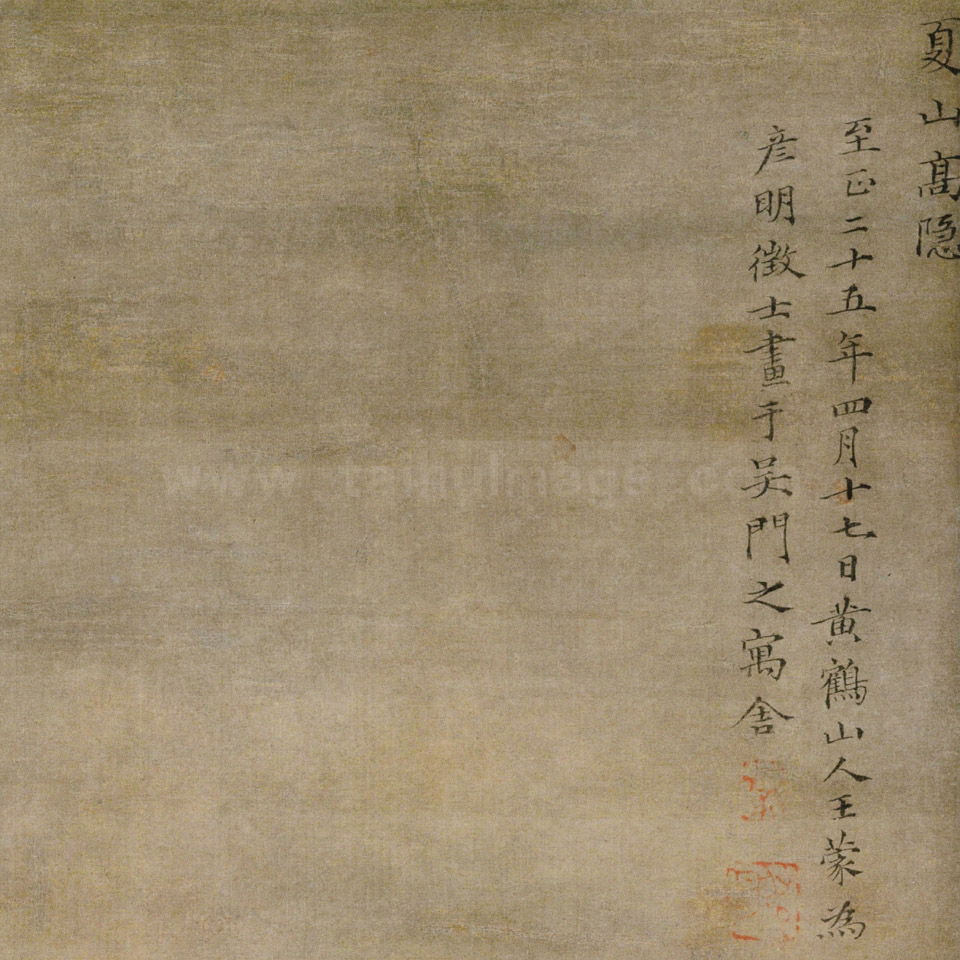 夏山髙隠
至正二十五年四月十七日黄鶴山人王蒙為
彦明徴士畫于吴門之寓舎